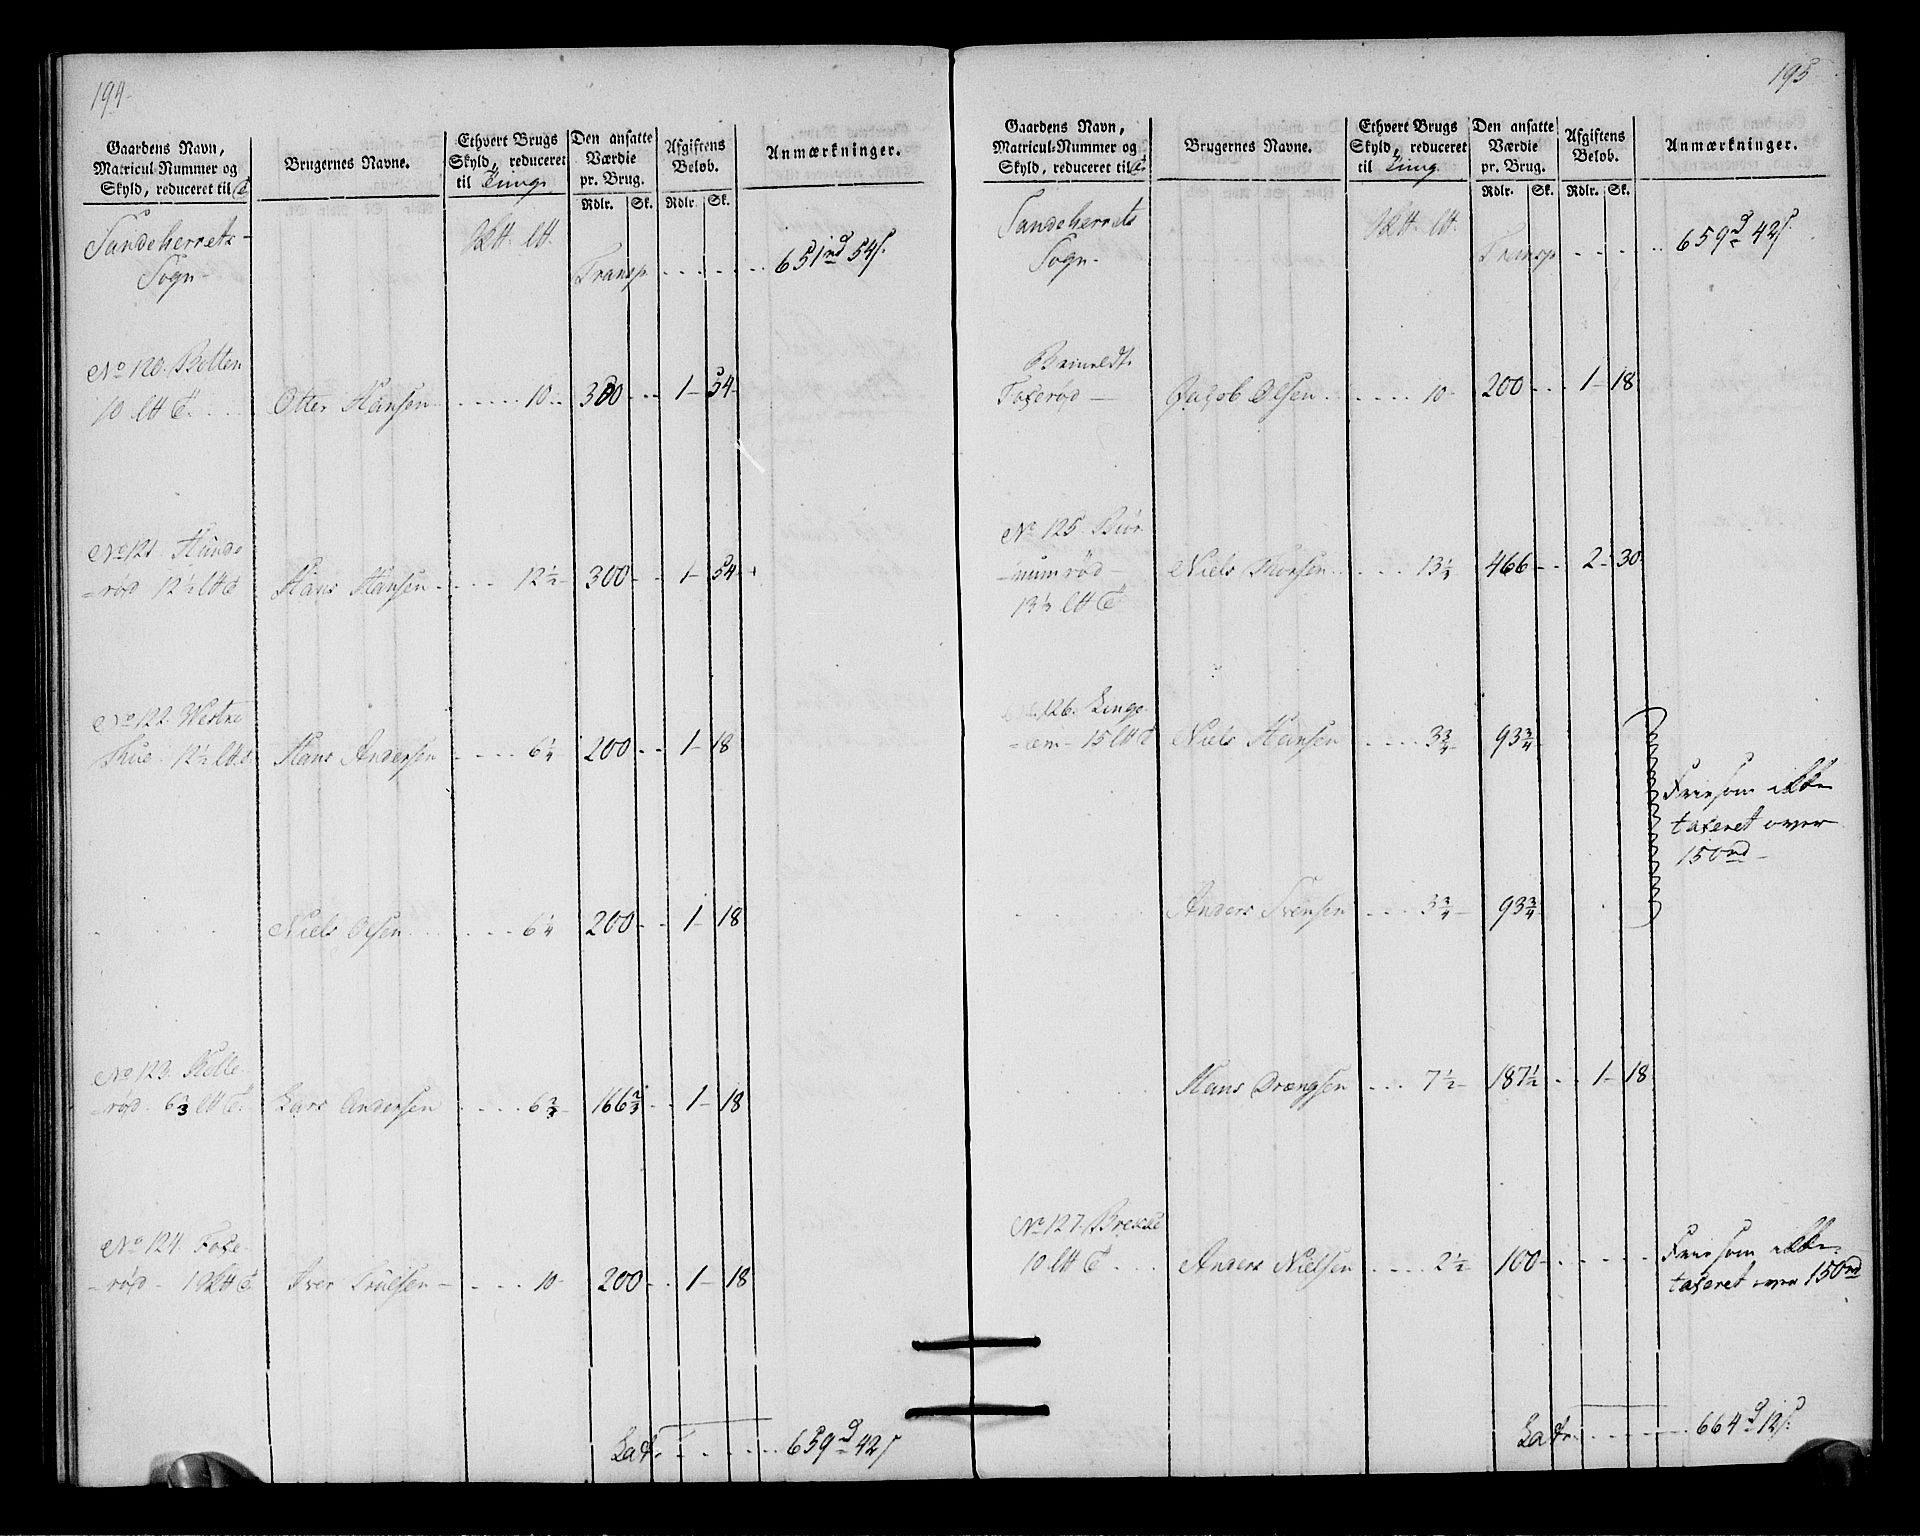 194.
Gaardens Navn,
Matricul-Nummer og
Skyld, reduceret til
Brugernes Navne.
Ethvert Brugs
Skyld, reduceret
til Tung
Den ansatte
Værdie
pr. Brug.
Rdlr. Sk.
Afgiftens
Beløb.
Rdlr. Sk.
Anmærkninger.
Sandeherrets
Sogn
Transp 651rd 54s.
No 120. Bolten
10 Otter Hansen 10 300 1 54
No 121. Hunde
=rød 12½ Hans Hansen 12½ 300 1 54
No 122. Westre
12½ Hans Andersen 6¼ 200 1 18
Niels Olsen 6¼ 200 1 18
No 123. Kolle
rød 6⅔ Lars Andersen 6⅔ 166⅔ 1 18
No 124. Foxe
rød 10 Iver Truelsen 10 200 1 18
Lat. 659d 42s
195
Gaardens Navn,
Matricul-Nummer og
Skyld, reduceret til
Brugernes Navne.
Ethvert Brugs
Skyld, reduceret
til Tung
Den ansatte
Værdie
pr. Brug.
Rdlr. Sk.
Afgiftens
Beløb.
Rdlr. Sk.
Anmærkninger.
Sandeherrets
Sogn
Transp 659d 42s.
Foxerød Jacob Olsen 10 200 1 18
No 125.
=numrød Niels Thorsen 13⅓ 466 2 30
13⅓
126.
15 Niels Hansen 3¾ 93¾
Fri som ikke
taxeret over
150rd
Anders Svensen 3¾ 93¾
Hans Drengsen 7½ 187½ 1 18
No 127. Brekke
10 Anders Nielsen 2½ 100 Fri som ikke
taxeret over 150rd
Lat. 664d 12s.